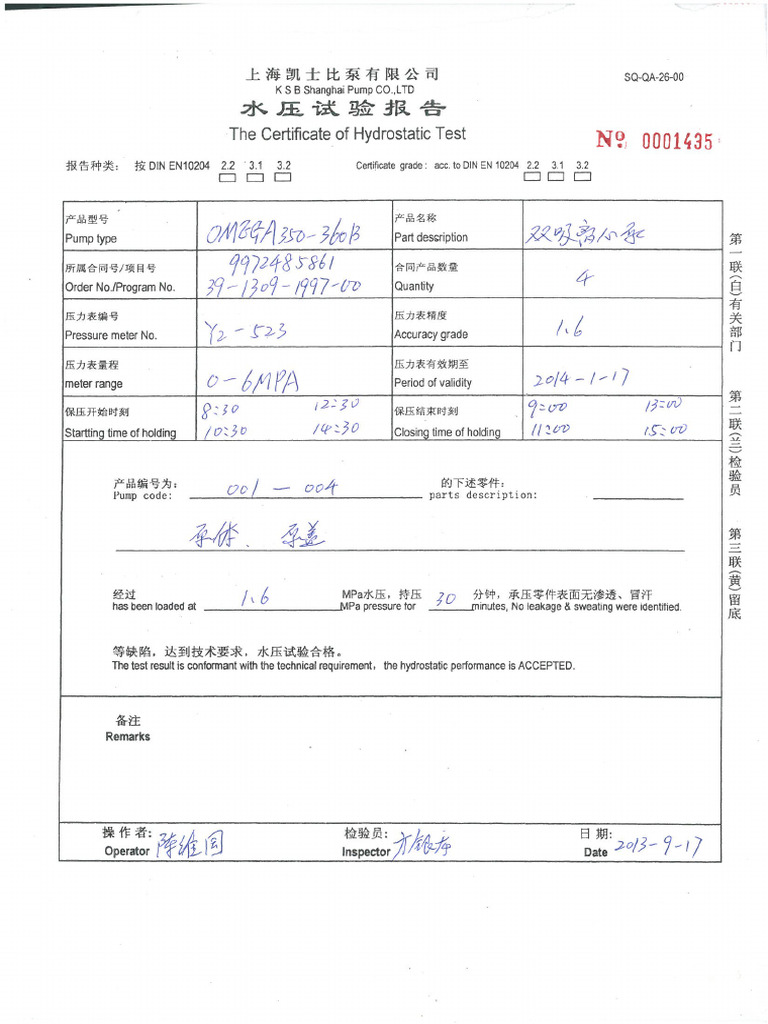 上海凯士比泵有限公司
SQ-QA-26-00
K S B Shanghai Pump CO.,LTD
水压试验报告
The Certificate of Hydrostatic Test
№ 0001435
报告种类: 按 DIN EN10204 2.2 3.1 3.2 Certificate grade: acc. to DIN EN 10204 2.2 3.1 3.2
产品型号 OMEGA350-360B 产品名称 双吸离心泵
Pump type Part description
所属合同号/项目号 9972485861 合同产品数量 4
Order No./Program No. 39-1309-1997-00 Quantity
压力表编号 Y2-523 压力表精度 1.6
Pressure meter No. Accuracy grade
压力表量程 0-6MPA 压力表有效期至 2014-1-17
meter range Period of validity
保压开始时刻 8:30 12:30 保压结束时刻 9:00 13:00
Startting time of holding 10:30 14:30 Closing time of holding 11:00 15:00
产品编号为: 001-004 的下述零件:
Pump code: parts description:
泵体、泵盖
经过 1.6 MPa水压，持压 30 分钟，承压零件表面无渗透、冒汗
has been loaded at MPa pressure for minutes, No leakage & sweating were identified.
等缺陷，达到技术要求，水压试验合格。
The test result is conformant with the technical requirement，the hydrostatic performance is ACCEPTED.
备注
Remarks
操作者: 陈维国 检验员: 日期: 2013-9-17
Operator Inspector Date
第一联(白)有关部门
第二联(兰)检验员
第三联(黄)留底